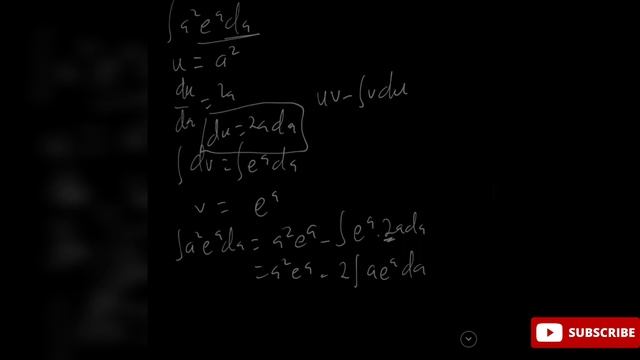 ∫a²eᵃda
u = a²
du/da = 2a
uv-∫vdu
du=2ada
∫dv=∫eᵃda
v = eᵃ
∫a²eᵃda = a²eᵃ - ∫eᵃ.2ada
= a²eᵃ - 2∫aeᵃda
SUBSCRIBE